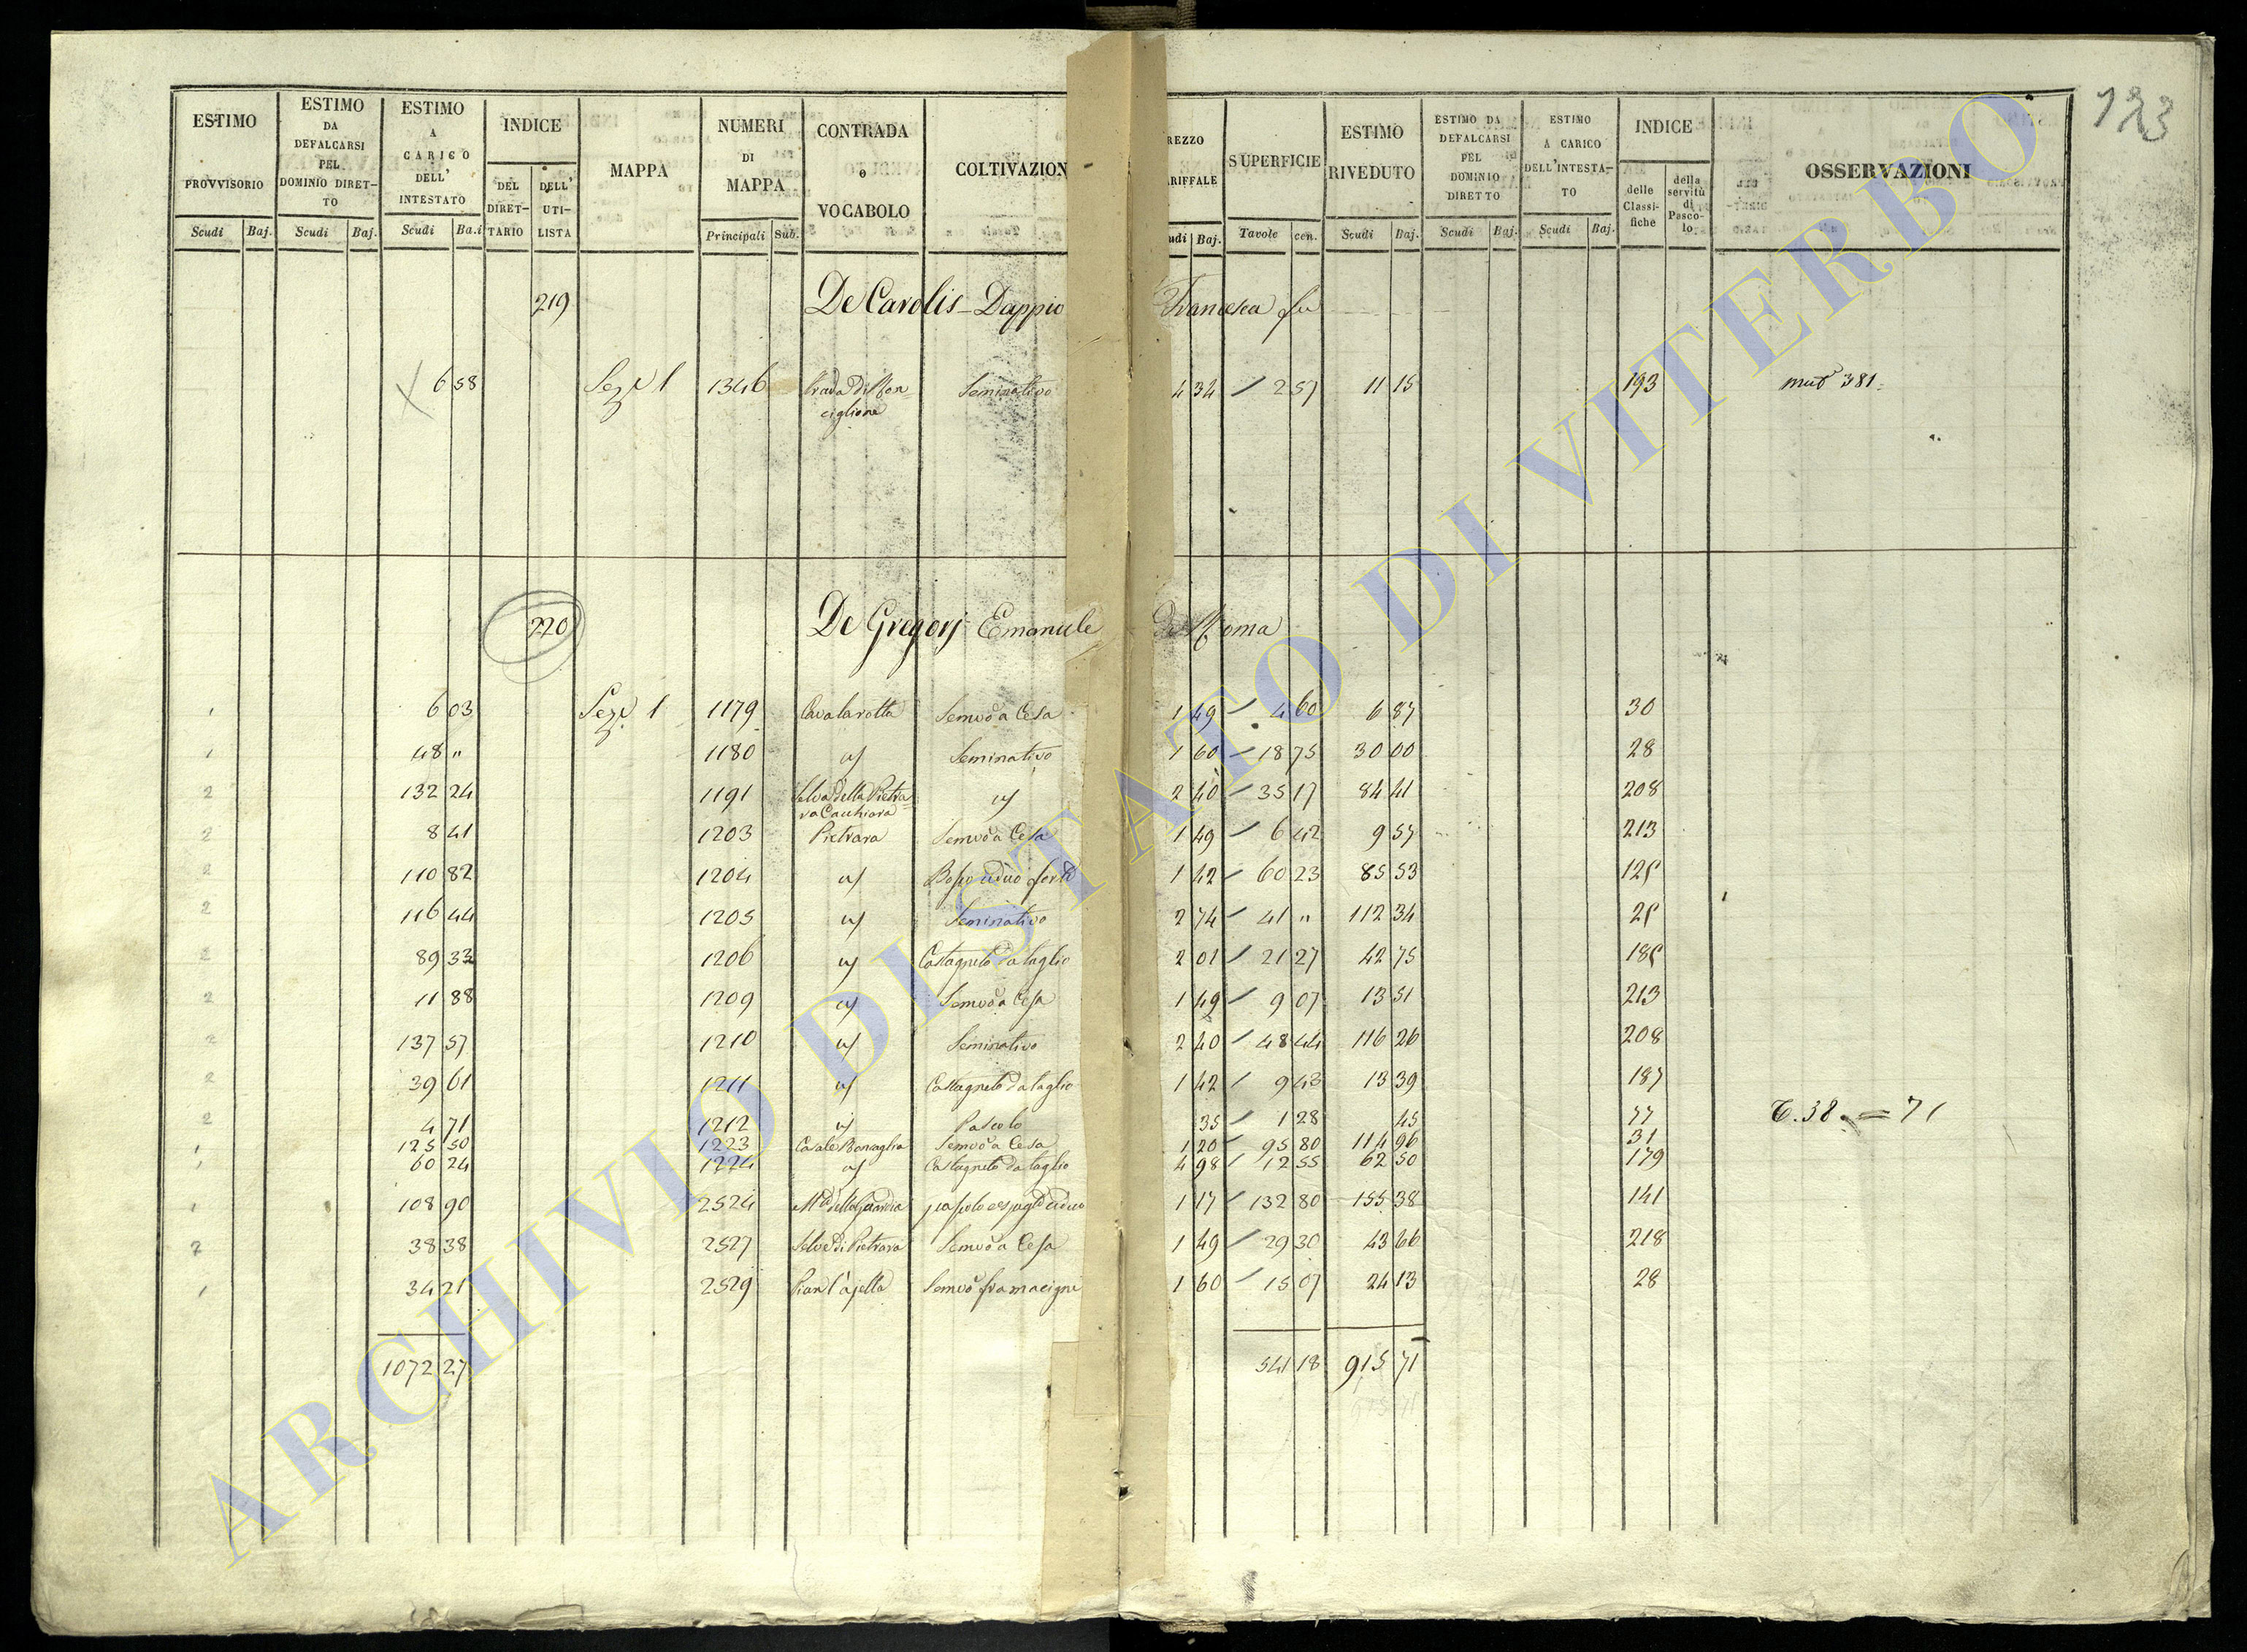 123
ESTIMO PROVVISORIO Scudi Baj.
ESTIMO DA DEFALCARSI PEL DOMINIO DIRETTO Scudi Baj.
ESTIMO A CARICO DELL' INTESTATO Scudi Ba.i
INDICE DEL DIRETTARIO DELL' UTILISTA
MAPPA
NUMERI DI MAPPA Principali Sub.
CONTRADA o VOCABOLO
COLTIVAZION
REZZO ARIFFALE udi Baj.
SUPERFICIE Tavole cen.
ESTIMO RIVEDUTO Scudi Baj.
ESTIMO DA DEFALCARSI PEL DOMINIO DIRETTO Scudi Baj.
ESTIMO A CARICO DELL'INTESTATO Scudi Baj.
INDICE delle Classifiche della servitù di Pascolo
OSSERVAZIONI
219 De Carolis - Dappio Francesca fu
6 58 Sez. 1 1346 Strada di Ronciglione Seminativo 4 34 2 57 11 15 193 mut 381
220 De Gregorj Emanuele di Roma
1 6 03 Sez. 1 1179 Cavalarotta Semvo a Cesa 1 49 4 60 6 87 30
1 48 " 1180 Seminativo 1 60 18 75 30 00 28
2 132 24 1191 Selva della Pietrara Cacchiara 2 40 35 17 84 41 208
2 8 41 1203 Pietrara Semvo a Cesa 1 49 6 42 9 57 213
2 110 82 1204 Bosco ceduo forte 1 42 60 23 85 53 125
2 116 44 1205 Seminativo 2 74 41 " 112 34 25
2 89 33 1206 Castagneto da taglio 2 01 21 27 42 75 185
2 11 88 1209 Semvo a Cesa 1 49 9 07 13 51 213
2 137 57 1210 Seminativo 2 40 48 44 116 26 208
2 39 61 1211 Castagneto da taglio 1 42 9 43 13 39 187
2 4 71 1212 Pascolo 35 1 28 45 77 38. = 71
1 125 50 1223 Casale Bonaglia Semvo a Cesa 1 20 95 80 114 96 31
1 60 24 1224 Castagneto da taglio 4 98 12 55 62 50 179
1 108 90 2524 della Guardia pascolo ceduo 1 17 132 80 155 38 141
2 38 38 2527 Selve di Pietrara Semvo a Cesa 1 49 29 30 43 66 218
1 34 21 2529 Semvo fra macigni 1 60 15 07 24 13 28
1072 27 541 18 915 71
ARCHIVIO DI STATO DI VITERBO